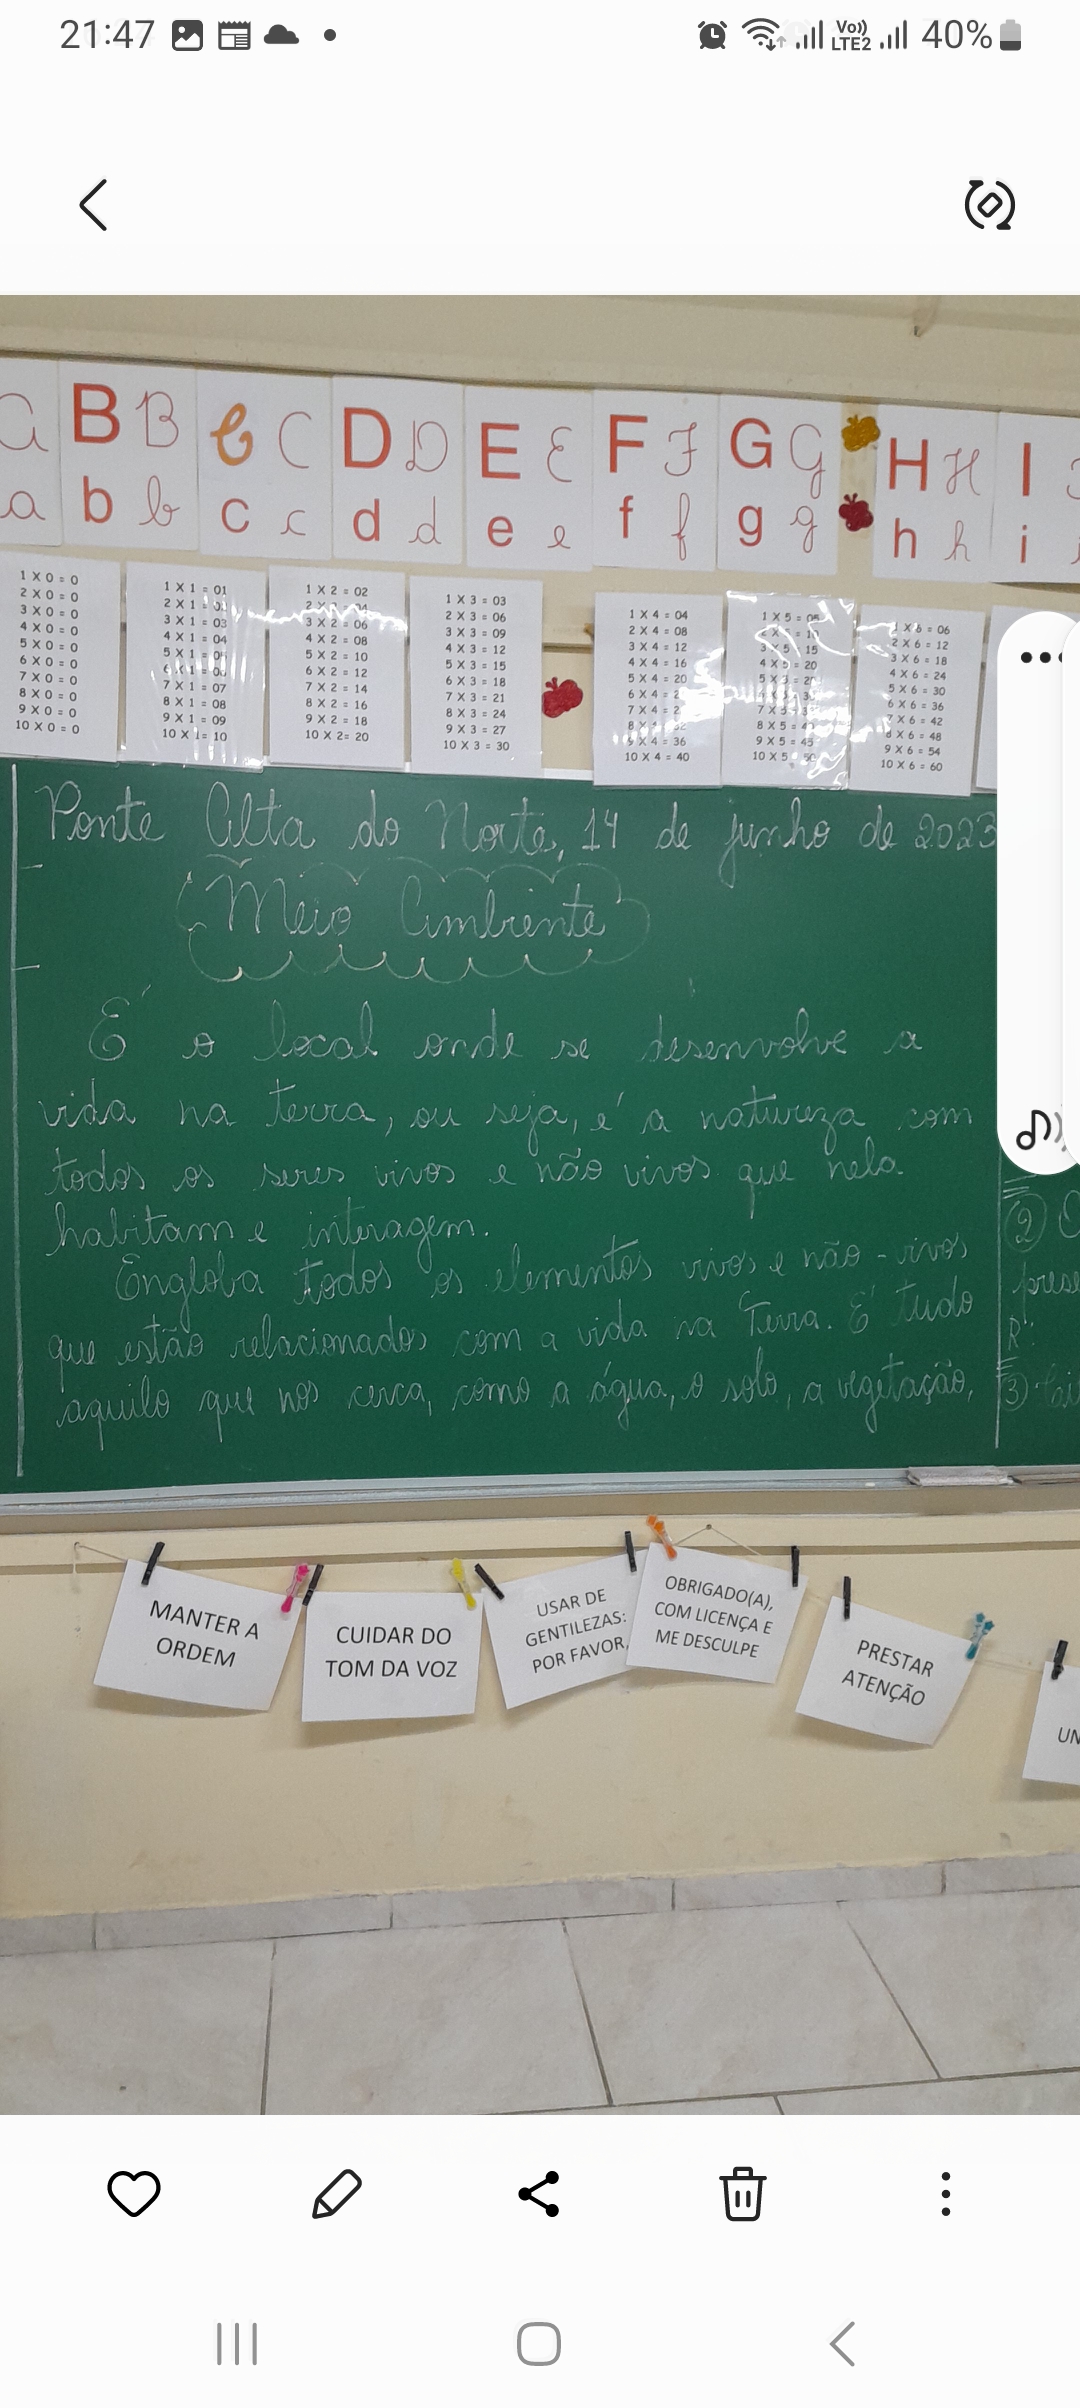 21:47
Vo)) LTE2 40%
a B B C C D D E E F F G G H H I
a b b c c d d e e f f g g h h i
1 X 0 = 0
2 X 0 = 0
3 X 0 = 0
4 X 0 = 0
5 X 0 = 0
6 X 0 = 0
7 X 0 = 0
8 X 0 = 0
9 X 0 = 0
10 X 0 = 0
1 X 1 = 01
2 X 1 =
3 X 1 = 03
4 X 1 = 04
5 X 1 =
6 X 1 =
7 X 1 = 07
8 X 1 = 08
9 X 1 = 09
10 X 1= 10
1 X 2 = 02
3 X 2 = 06
4 X 2 = 08
5 X 2 = 10
6 X 2 = 12
7 X 2 = 14
8 X 2 = 16
9 X 2 = 18
10 X 2= 20
1 X 3 = 03
2 X 3 = 06
3 X 3 = 09
4 X 3 = 12
5 X 3 = 15
6 X 3 = 18
7 X 3 = 21
8 X 3 = 24
9 X 3 = 27
10 X 3 = 30
1 X 4 = 04
2 X 4 = 08
3 X 4 = 12
4 X 4 = 16
5 X 4 = 20
6 X 4 =
7 X 4 =
8 X
9 X 4 = 36
10 X 4 = 40
1 X 5 =
3 X 5 = 15
4 X 5 = 20
8 X 5 =
9 X 5 = 45
10 X 5 =
1 X 6 = 06
2 X 6 = 12
3 X 6 = 18
4 X 6 = 24
5 X 6 = 30
6 X 6 = 36
7 X 6 = 42
8 X 6 = 48
9 X 6 = 54
10 X 6 = 60
Ponte Alta do Norte, 14 de junho de 2023
Meio Ambiente
É o local onde se desenvolve a
vida na terra, ou seja, é a natureza com
todos os seres vivos e não vivos que nela
habitam e interagem.
Engloba todos os elementos vivos e não-vivos
que estão relacionados com a vida na Terra. É tudo
aquilo que nos cerca, como a água, o solo, a vegetação,
2
R:
3
MANTER A
ORDEM
CUIDAR DO
TOM DA VOZ
USAR DE
GENTILEZAS:
POR FAVOR,
OBRIGADO(A),
COM LICENÇA E
ME DESCULPE
PRESTAR
ATENÇÃO
UN